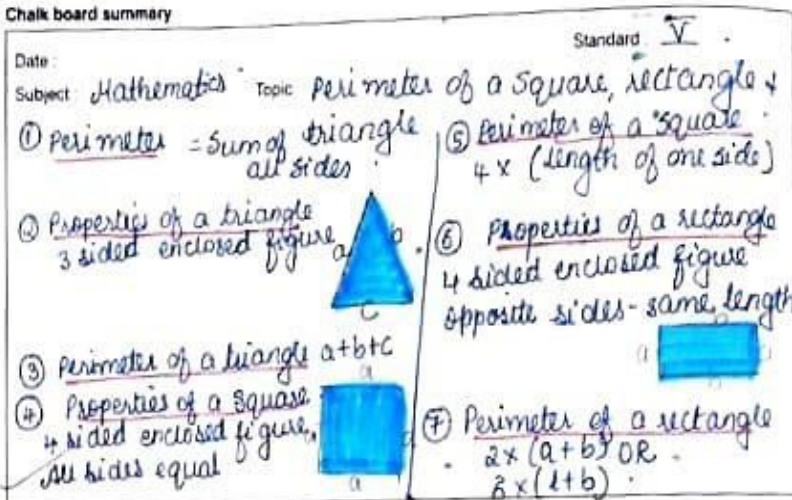 Chalk board summary
Standard V.
Date:
Subject Mathematics Topic Perimeter of a Square, rectangle &
triangle
① Perimeter = Sum of
all sides
② Properties of a triangle
3 sided enclosed figure
a b
c
③ Perimeter of a triangle a+b+c
④ Properties of a square
4 sided enclosed figure,
All sides equal
a
a
a
⑤ Perimeter of a square
4 x (length of one side)
⑥ Properties of a rectangle
4 sided enclosed figure
opposite sides - same length
a
⑦ Perimeter of a rectangle
2 x (a+b) OR
2 x (l+b)